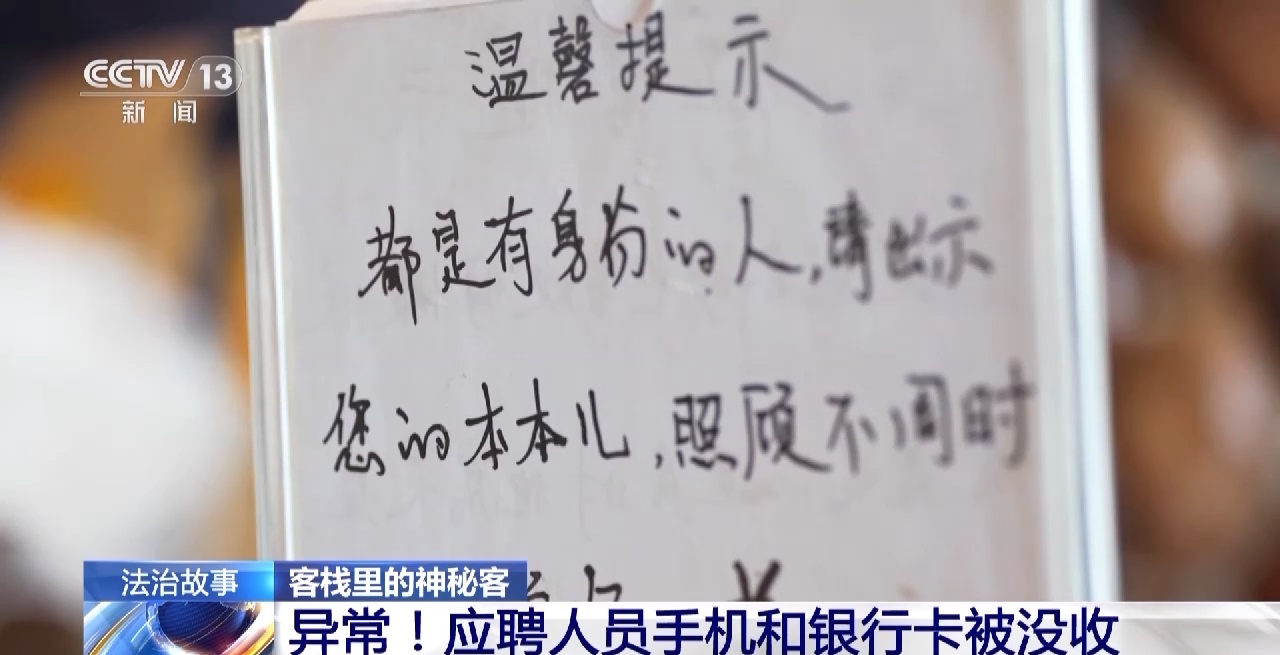 CCTV 13
新闻
温馨提示
都是有身份的人,请出示
您的本本儿,照顾不周时
法治故事
客栈里的神秘客
异常!应聘人员手机和银行卡被没收